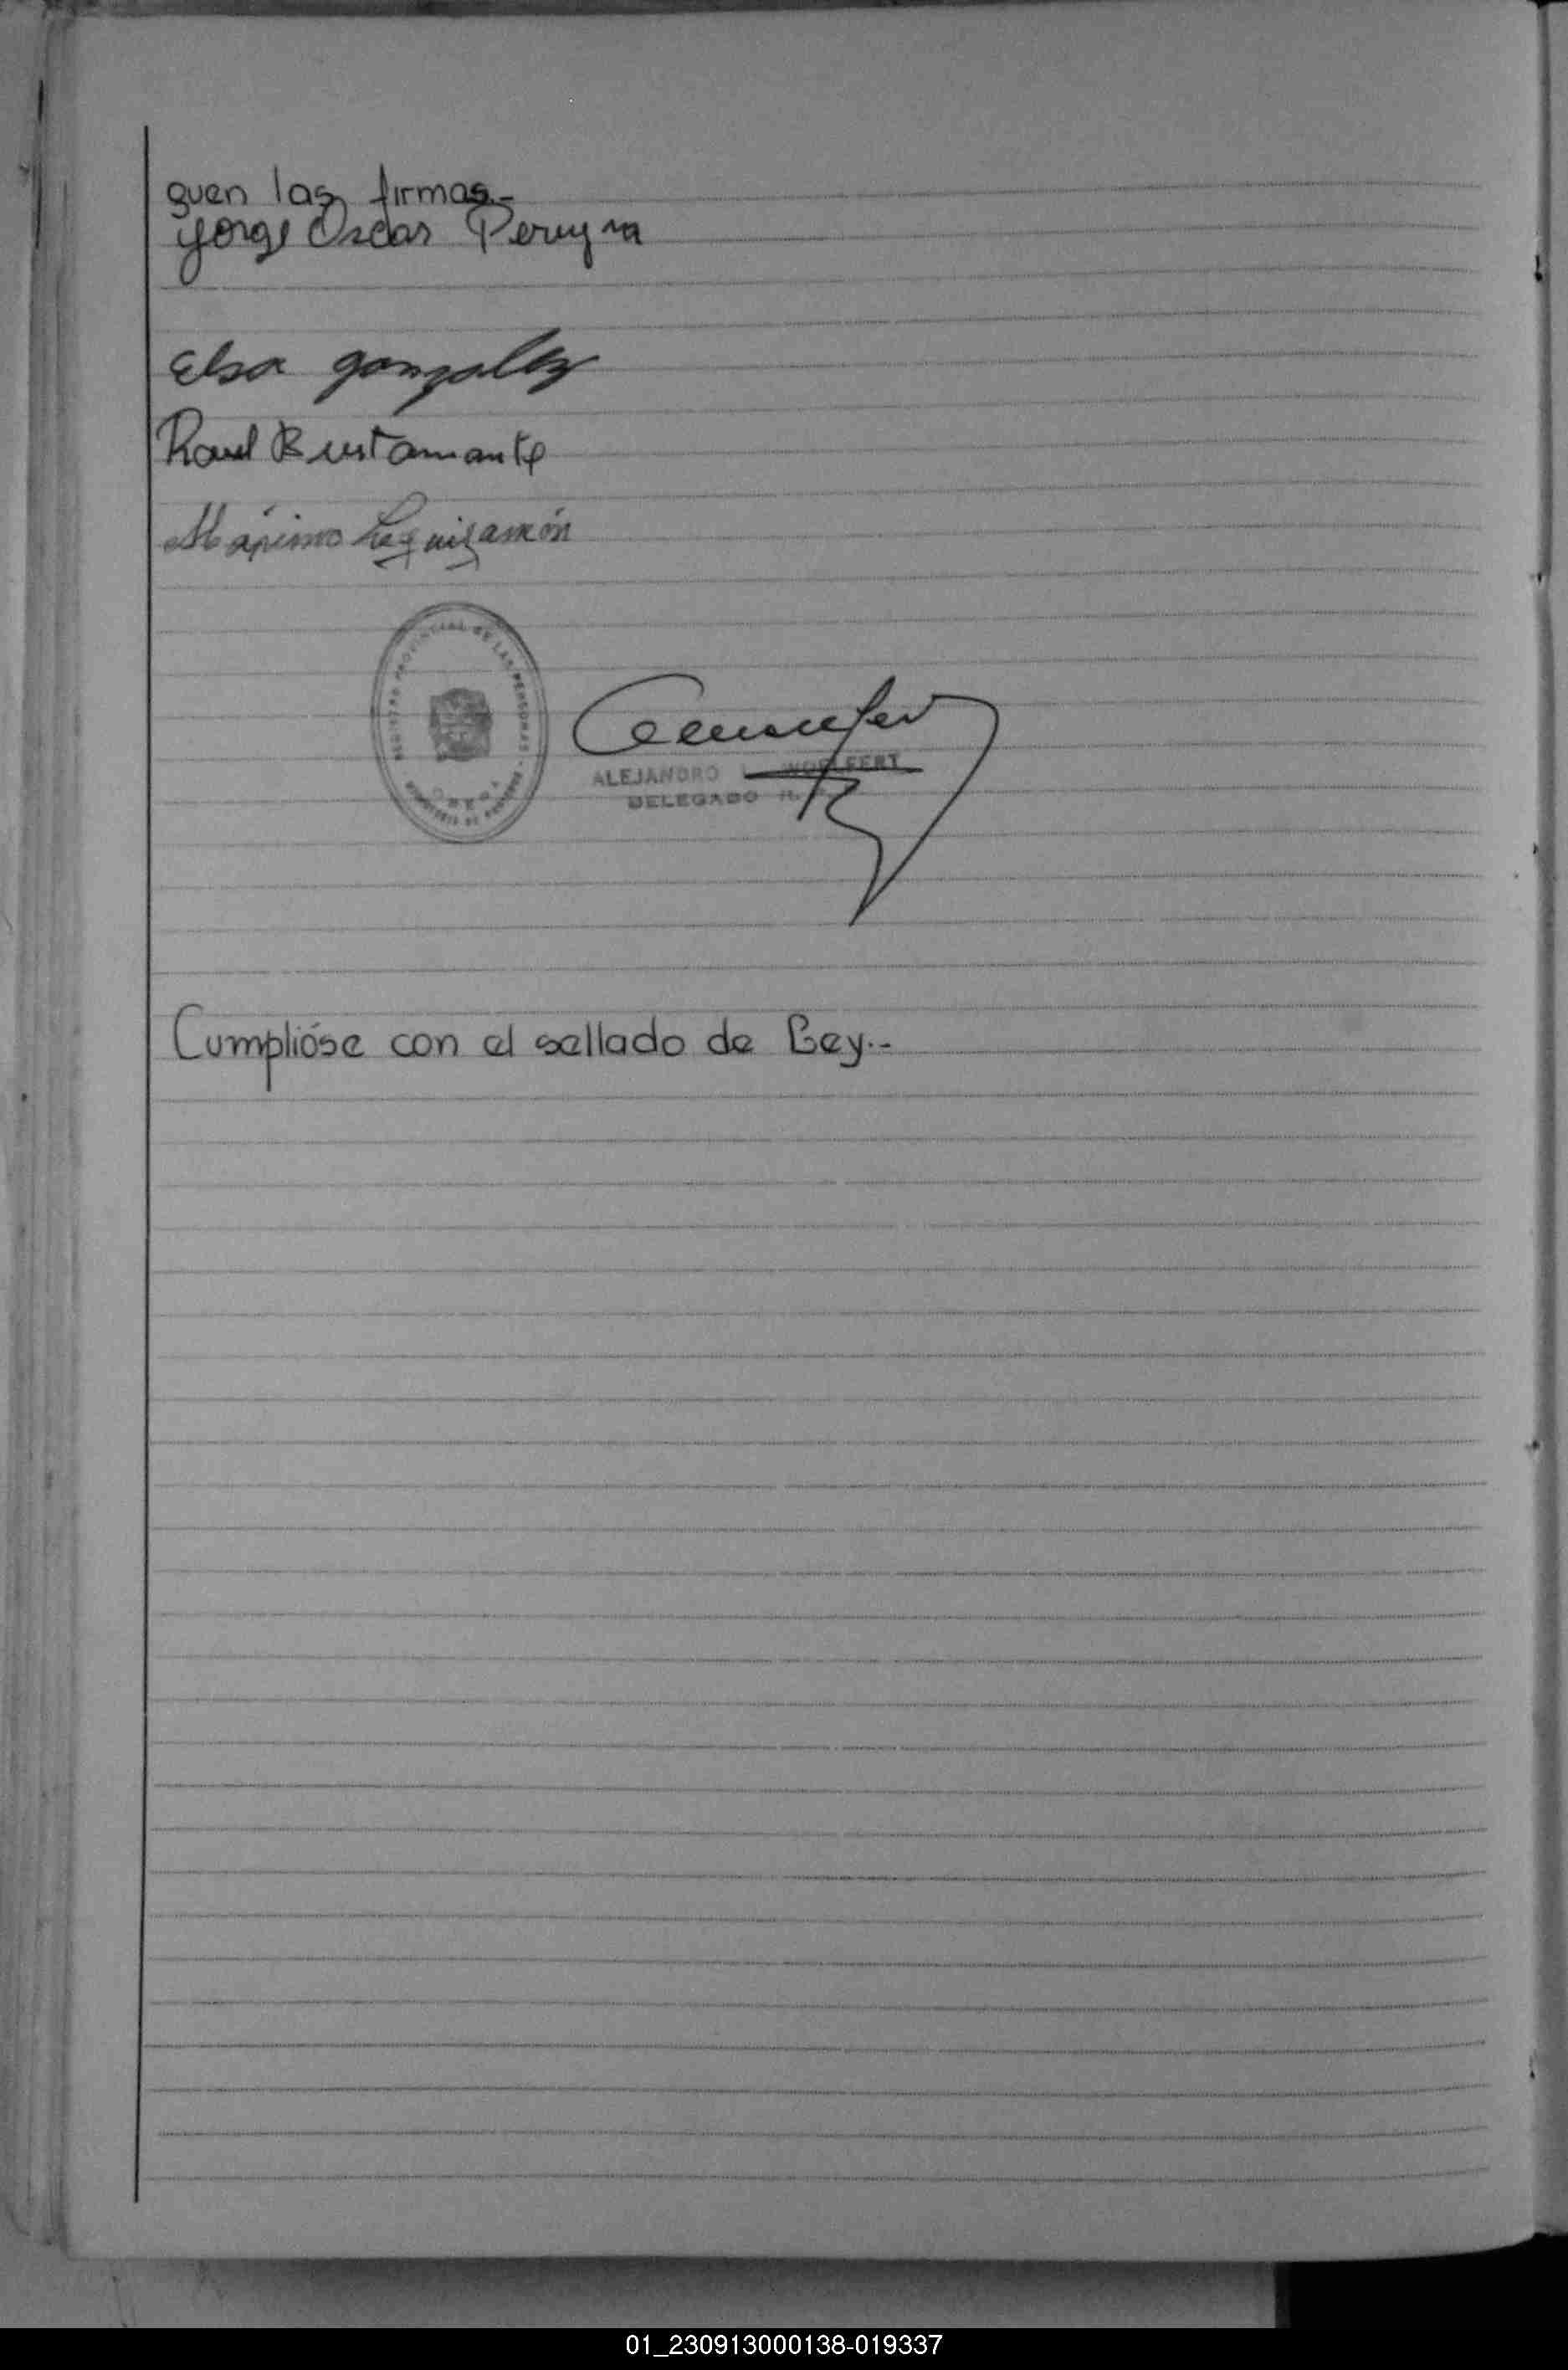 guen las firmas.-
Jorge Oscar Pereyra
Elsa gonzalez
Raul Bustamante
Máximo Leguizamón
REGISTRO PROVINCIAL DE LAS PERSONAS
ALEJANDRO L. WOELFERT
DELEGADO R.
Cumplióse con el sellado de Ley.-
01_230913000138-019337